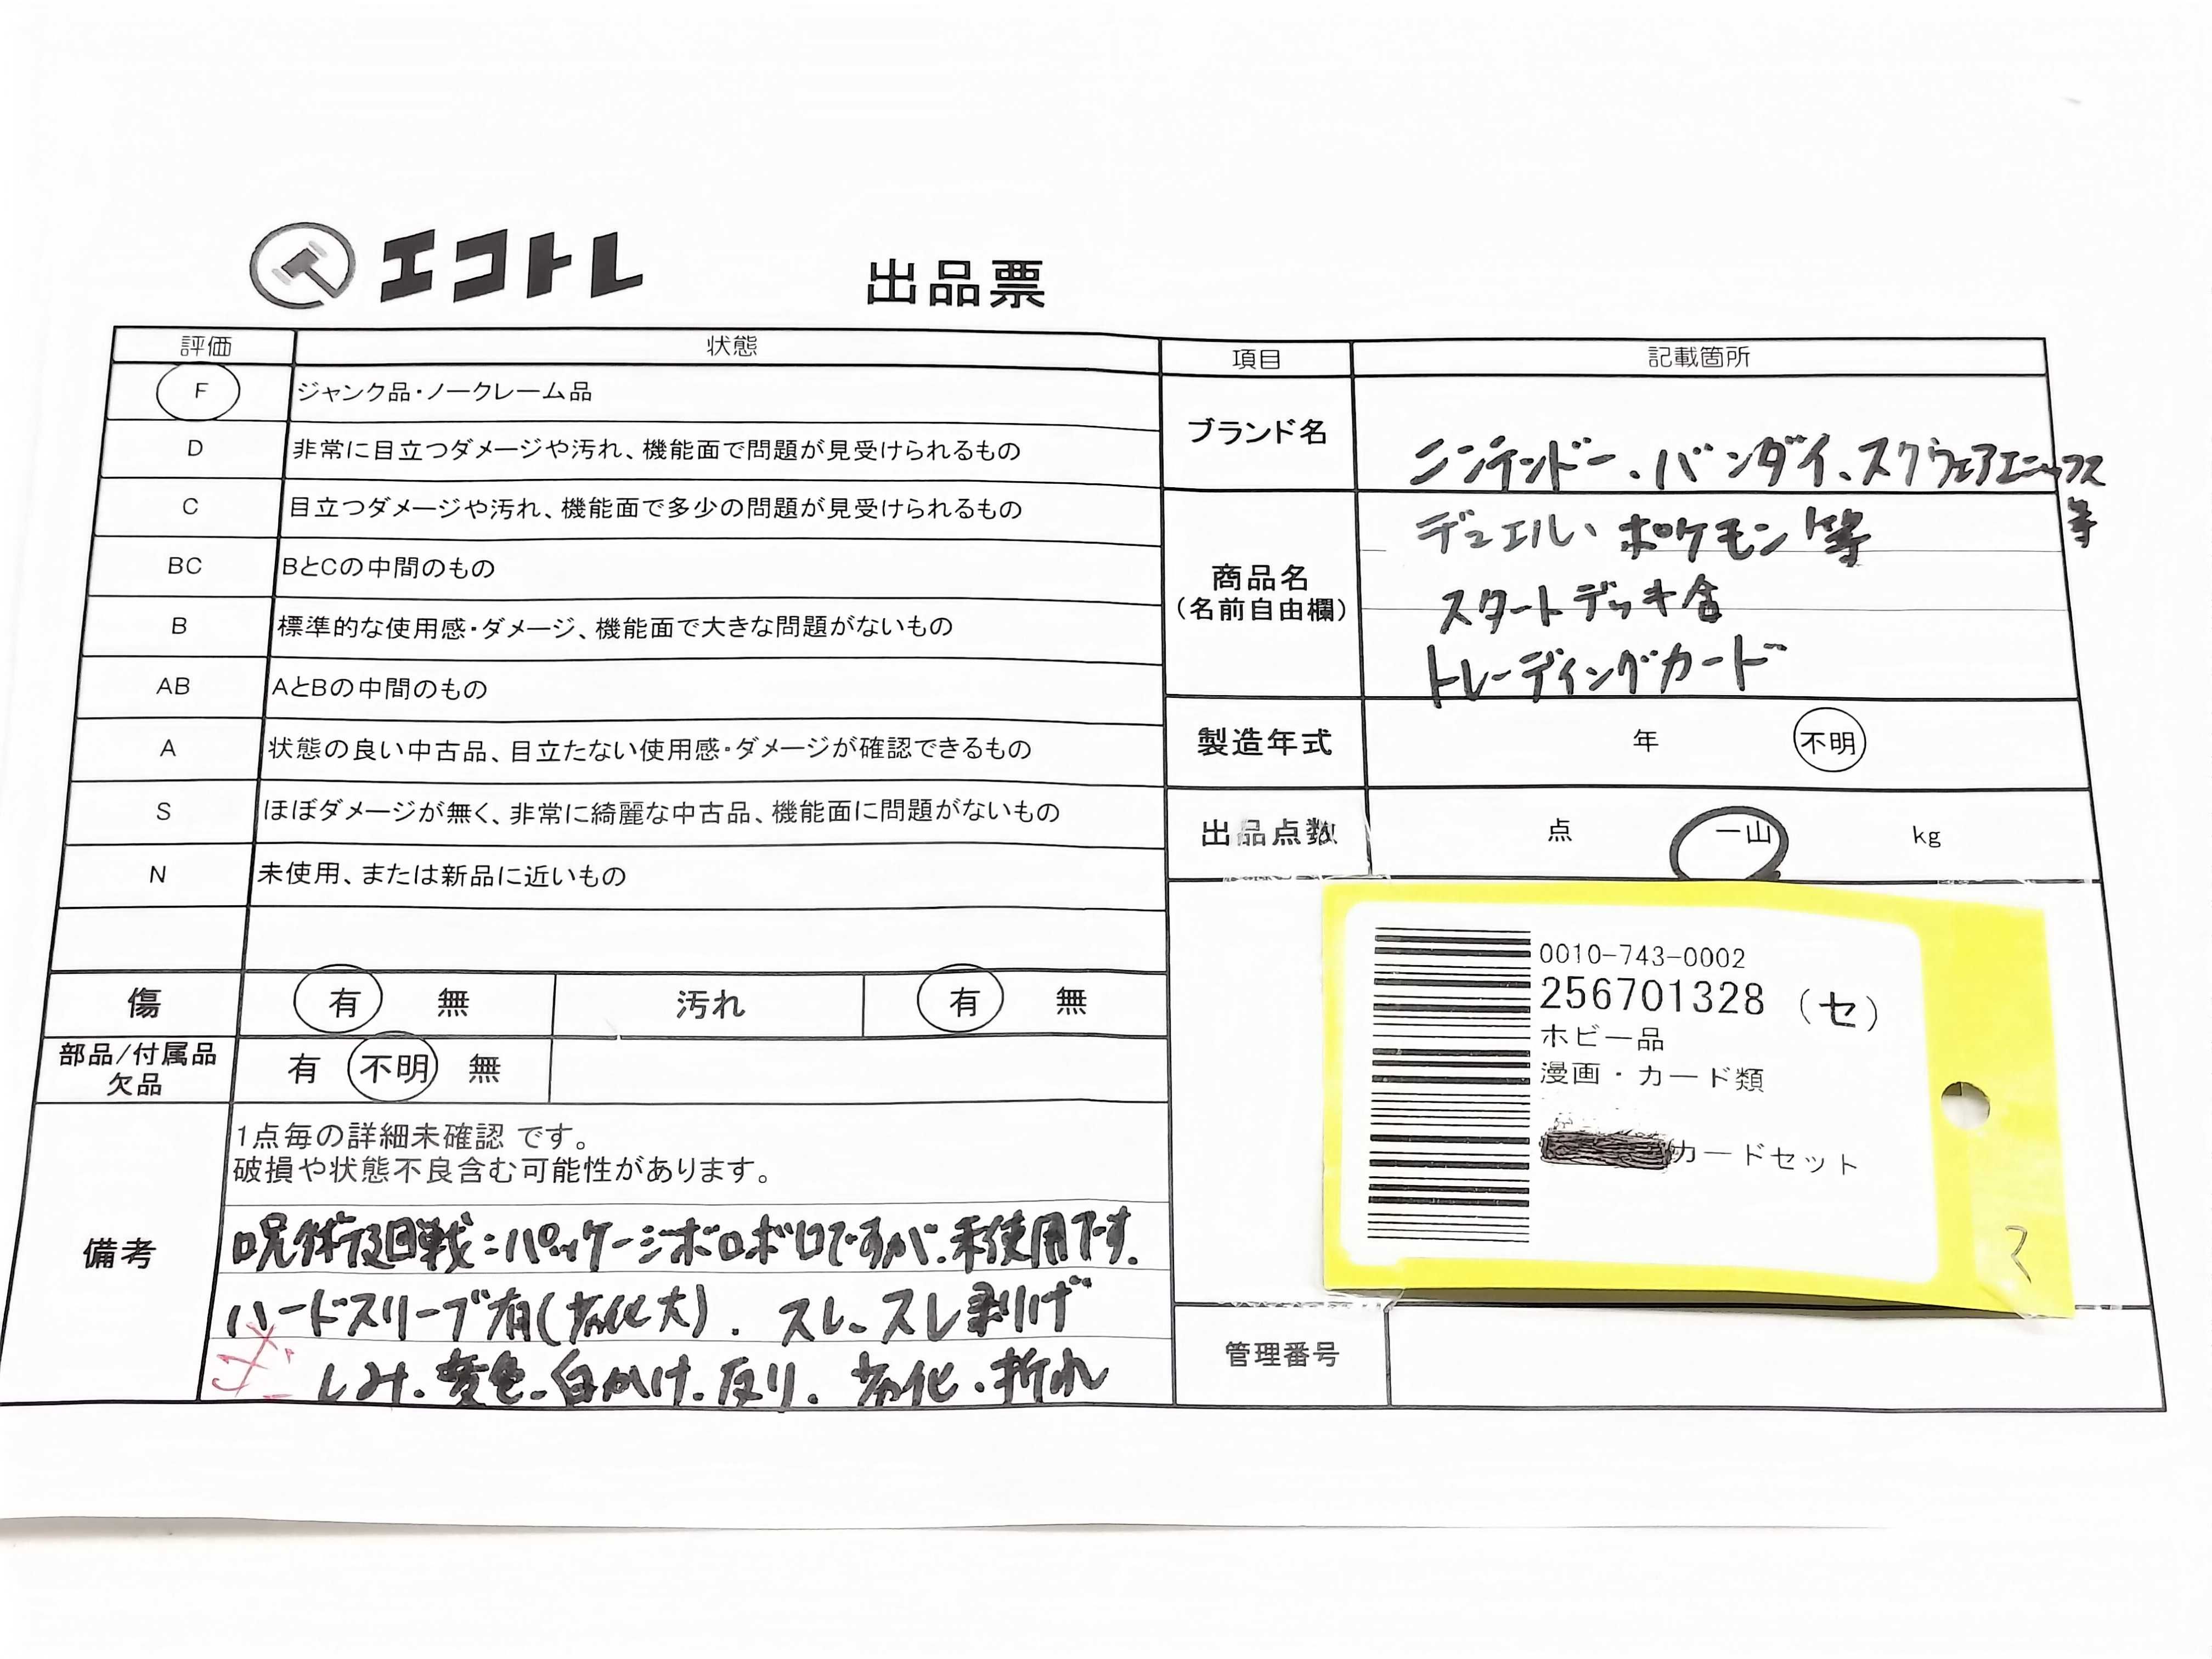 エコトレ
出品票
評価 状態
F ジャンク品・ノークレーム品
D 非常に目立つダメージや汚れ、機能面で問題が見受けられるもの
C 目立つダメージや汚れ、機能面で多少の問題が見受けられるもの
BC BとCの中間のもの
B 標準的な使用感・ダメージ、機能面で大きな問題がないもの
AB AとBの中間のもの
A 状態の良い中古品、目立たない使用感・ダメージが確認できるもの
S ほぼダメージが無く、非常に綺麗な中古品、機能面に問題がないもの
N 未使用、または新品に近いもの
傷 有 無 汚れ 有 無
部品/付属品
欠品
有 不明 無
備考
1点毎の詳細未確認 です。
破損や状態不良含む可能性があります。
呪術廻回戦:パッケージボロボロですが、未使用です.
ハードスリーブ有(劣化大). スレ、スレ剥げ
しみ、変色、白かけ、反り、劣化、折れ
項目 記載箇所
ブランド名
ニンテンドー、バンダイ、スクウェアエニックス
等
商品名
(名前自由欄)
デュエル、ポケモン等
スタートデッキ含
トレーディングカード
製造年式 年 不明
出品点数 点 一山 kg
0010-743-0002
256701328 (セ)
ホビー品
漫画・カード類
カードセット
管理番号